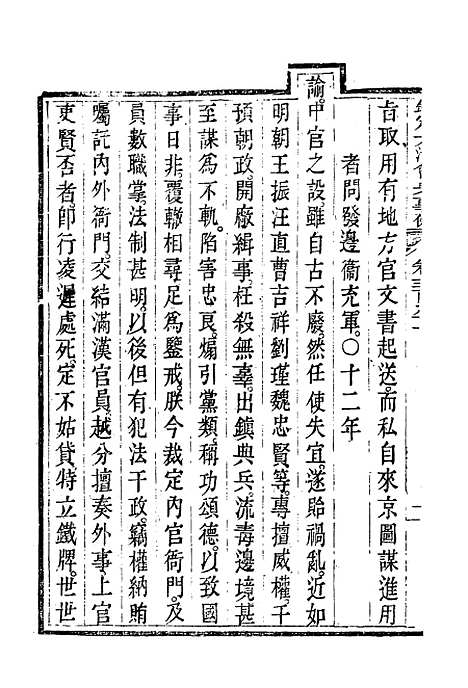 旨取用有地方官文書起送而私自來京圖謀進用
者問發邊衞充軍○十二年
諭中官之設雖自古不廢然任使失宜遂貽禍亂近如
明朝王振汪直曹吉祥劉瑾魏忠賢等專擅威權干
預朝政開廠緝事枉殺無辜出鎮典兵流毒邊境甚
至謀爲不軌陷害忠良煽引黨類稱功頌德以致國
事日非覆轍相尋足爲鑒戒朕今裁定內官衙門及
員數職掌法制甚明以後但有犯法干政竊權納賄
囑託內外衙門交結滿漢官員越分擅奏外事上官
吏賢否者卽行凌遲處死定不姑貸特立鐵牌世世